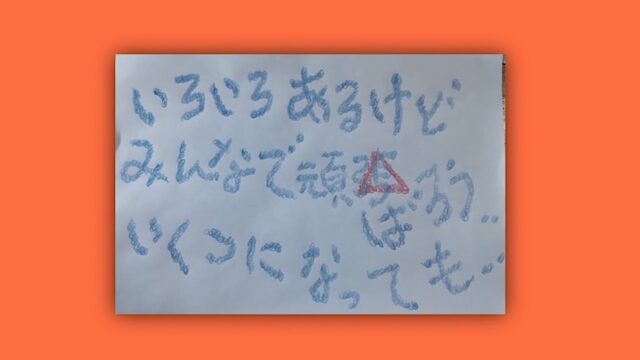 いろいろあるけど
みんなで頑張ろう‥
ば
いくつになっても‥